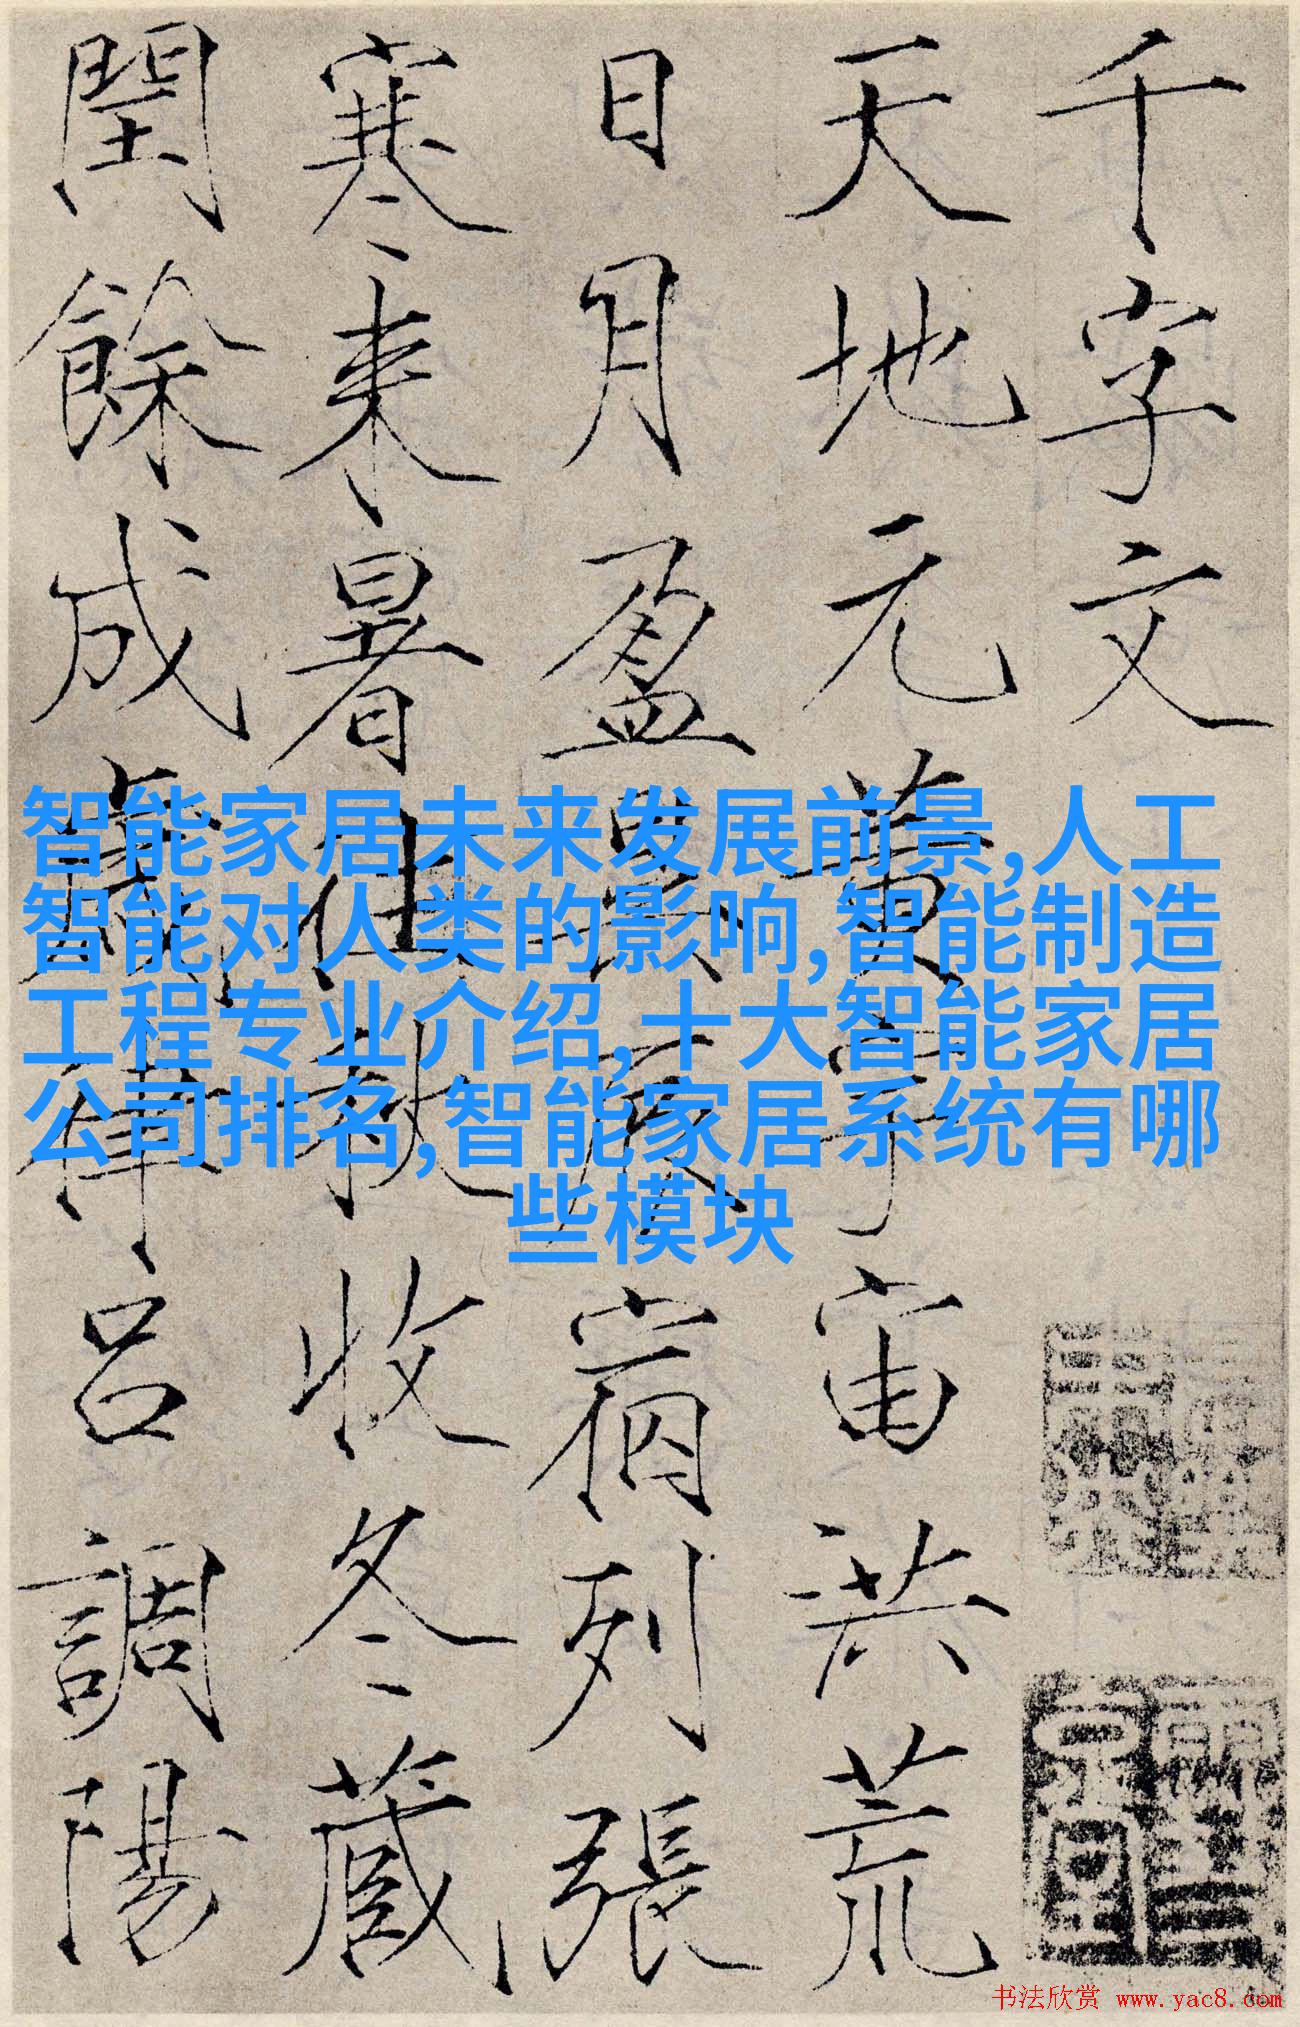 千字文
天地元黃宇宙洪荒
日月盈昃辰宿列張
寒来暑往秋收冬藏
閏餘成歲律吕調陽
智能家居未来发展前景,人工
智能对人类的影响,智能制造
工程专业介绍,十大智能家居
公司排名,智能家居系统有哪
些模块
书法欣赏 www.yac8.com